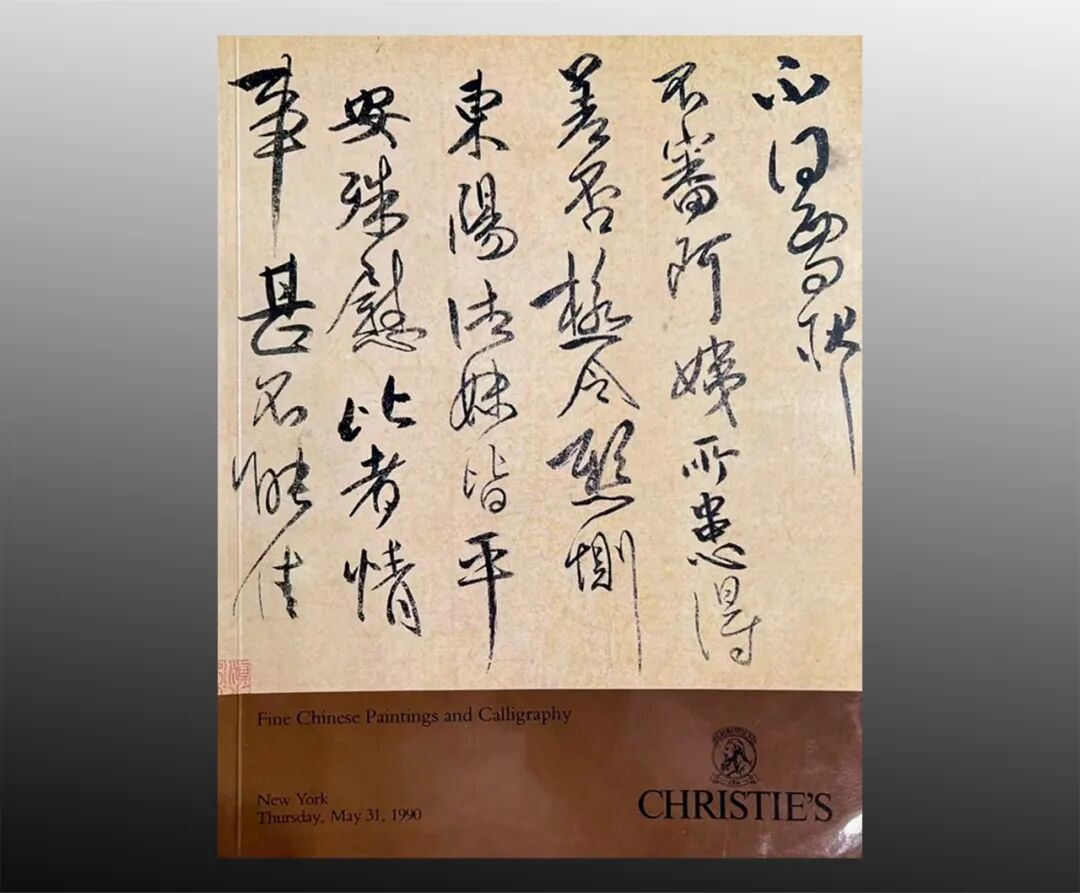 不審阿姨所患得
善否極令懸惻
東陽諸妹皆平
安殊慰比者情
事甚不能佳
Fine Chinese Paintings and Calligraphy
New York
Thursday, May 31, 1990
CHRISTIE'S